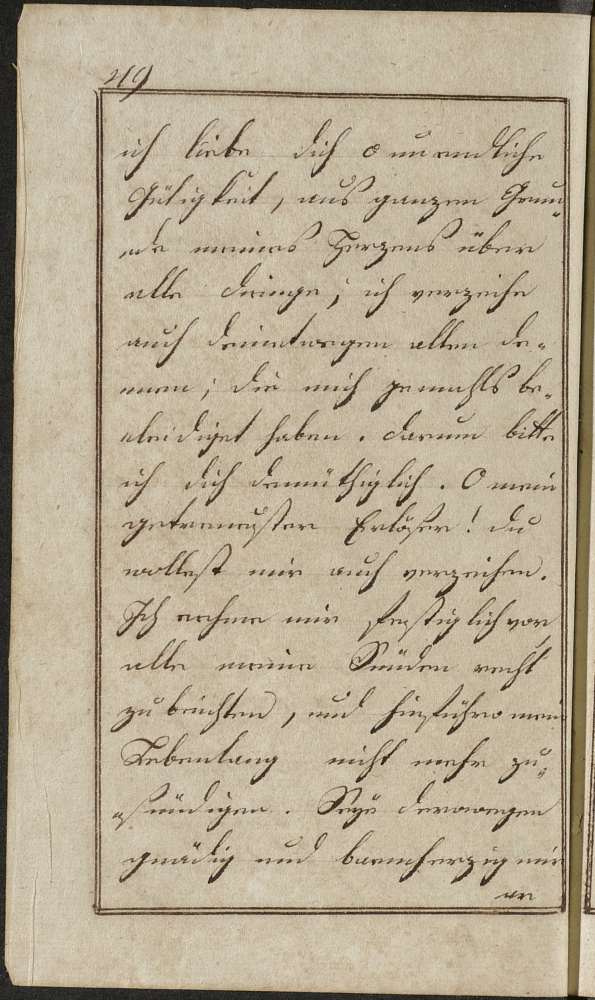 49
ich liebe dich o unendliche
Gütigkeit, aus ganzen Grun„
nde meines Herzens über
alle dinge; ich verzeihe
auch deinetwegen allen de„
nnen; die mich jemahls be„
eleidiget haben. darum bitte
ich dich demüthiglich. O mein
getreuster Erlöser! du
wollest mir auch verzeihen.
Ich nehme mir festiglich vor,
alle meine Sünden recht
zu beichten, und hinführo mein
Lebenlang nicht mehr zu„
„sündigen. Seye derowegen
gnädig und barmherzig mir